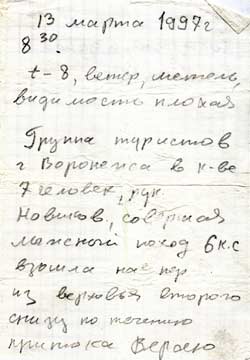 13 марта 1997г
8 30.
t-8, ветер, метель,
видимость плохая
Группа туристов
г Воронежа в к-ве
7 человек, рук.
Новиков, совершая
лыжный поход 6 к.с
взошла на пер.
из верховья второго
снизу по течению
притока